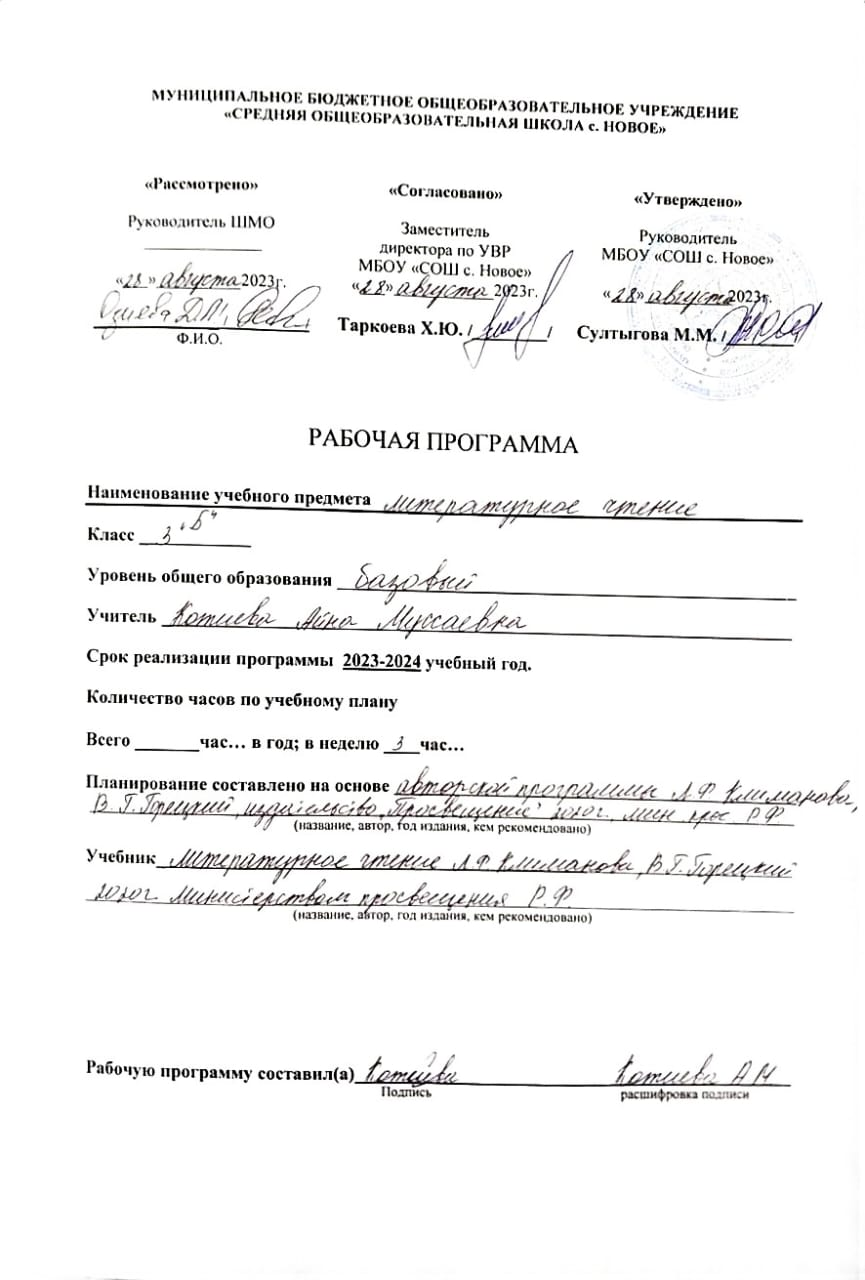 МУНИЦИПАЛЬНОЕ БЮДЖЕТНОЕ ОБЩЕОБРАЗОВАТЕЛЬНОЕ УЧРЕЖДЕНИЕ
«СРЕДНЯЯ ОБЩЕОБРАЗОВАТЕЛЬНАЯ ШКОЛА с. НОВОЕ»
«Рассмотрено»
Руководитель ШМО
«28» августа 2023г.
Ф.И.О.
«Согласовано»
Заместитель
директора по УВР
МБОУ «СОШ с. Новое»
«28» августа 2023г.
Таркоева Х.Ю. /
«Утверждено»
Руководитель
МБОУ «СОШ с. Новое»
«28» августа 2023г.
Султыгова М.М. /
РАБОЧАЯ ПРОГРАММА
Наименование учебного предмета литературное чтение
Класс 3 "Б"
Уровень общего образования базовый
Учитель Котиева Айна Муссаевна
Срок реализации программы 2023-2024 учебный год.
Количество часов по учебному плану
Всего _______час… в год; в неделю 3 час…
Планирование составлено на основе авторской программы Л.Ф Климанова,
В. Г. Горецкий, издательство „Просвещение" 2020г. мин прос Р.Ф
(название, автор, год издания, кем рекомендовано)
Учебник Литературное чтение Л.Ф Климанова, В Г. Горецкий
2020г. Министерством просвещения Р.Ф.
(название, автор, год издания, кем рекомендовано)
Рабочую программу составил(а) Котиева Котиева А М
Подпись расшифровка подписи